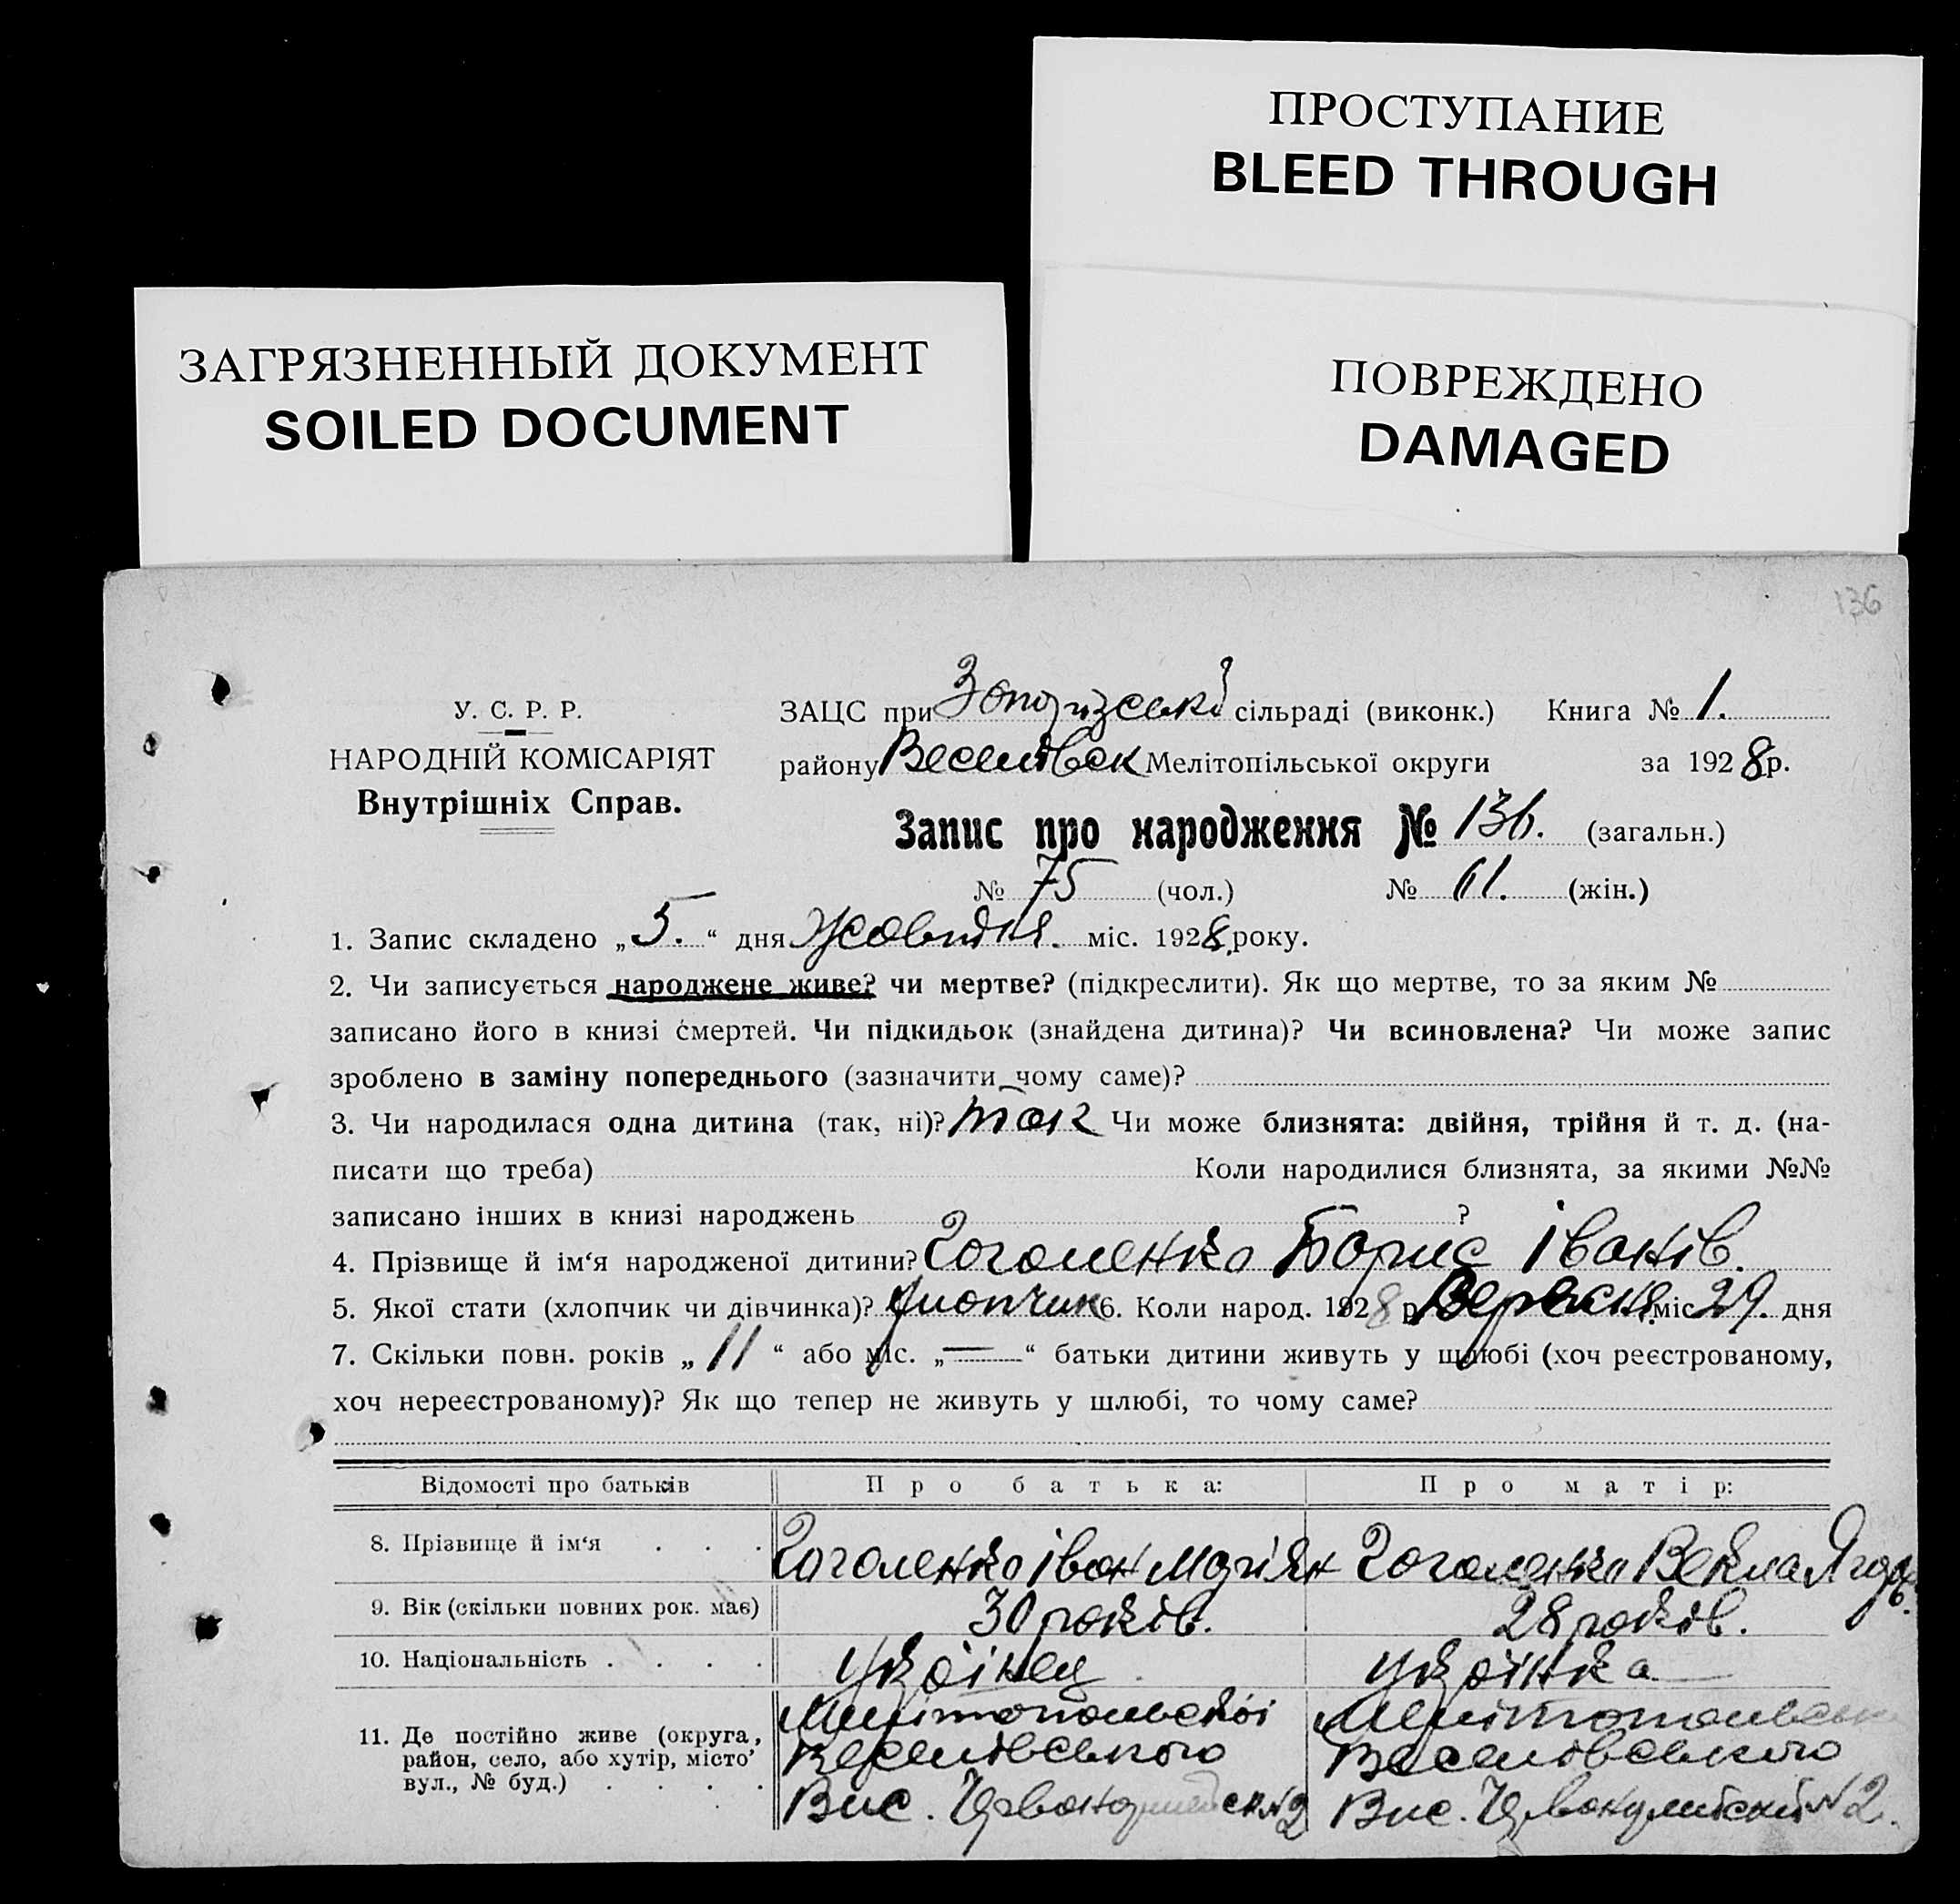 ПРОСТУПАНИЕ
BLEED THROUGH
ЗАГРЯЗНЕННЫЙ ДОКУМЕНТ
SOILED DOCUMENT
ПОВРЕЖДЕНО
DAMAGED
136
У. С. Р. Р.
НАРОДНІЙ КОМІСАРІЯТ
Внутрішніх Справ.
ЗАЦС при сільраді (виконк.) Книга № 1.
району Веселівськ Мелітопільської округи за 1928 р.
Запис про народження № 136. (загальн.)
№ 75 (чол.) № 61. (жін.)
1. Запис складено „5.“ дня Жовтня. міс. 1928 року.
2. Чи записується народжене живе? чи мертве? (підкреслити). Як що мертве, то за яким №
записано його в книзі смертей. Чи підкидьок (знайдена дитина)? Чи всиновлена? Чи може запис
зроблено в заміну попереднього (зазначити чому саме)?
3. Чи народилася одна дитина (так, ні)? так Чи може близнята: двійня, трійня й т. д. (на-
писати що треба) Коли народилися близнята, за якими №№
записано інших в книзі народжень ?
4. Прізвище й ім‘я народженої дитини? Гоголенко Борис Іванів.
5. Якої стати (хлопчик чи дівчинка)? хлопчик 6. Коли народ. 1928 р. Вересня міс. 29. дня
7. Скільки повн. років „11“ або міс. „—“ батьки дитини живуть у шлюбі (хоч реєстрованому,
хоч нереєстрованому)? Як що тепер не живуть у шлюбі, то чому саме?
Відомості про батьків Про батька: Про матір:
8. Прізвище й ім‘я . . . Гоголенко Іван Гоголенко Векла
9. Вік (скільки повних рок. має) 30 років. 28 років.
10. Національність . . . . Українец Українка
11. Де постійно живе (округа, Мелітопольської
район, село, або хутір, місто’ Веселівського Веселівського
вул., № буд.) . . . . Вис. №2 Вис. №2.